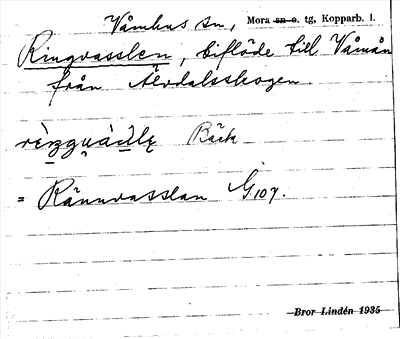 Våmhus sn, Mora sn o. tg, Kopparb. l.
Ringvasslen, biflöde till Våmån
från Älvdalsskogen.
Bäck
= Rännvasslan G107.
Bror Lindén 1935